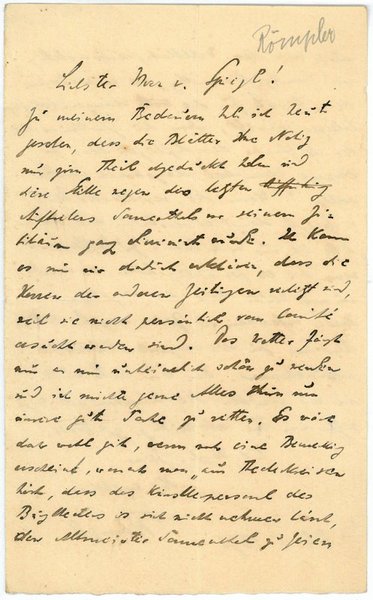 Römpler
Liebster Herr v. Spiegl!
Zu meinem Bedauern hab ich heut
gesehen, dass die Blätter Ihre Notiz
nur zum Theil abgedruckt haben und
diese Stelle wegen des letzten
Auftretens Sonnenthals vor seinem Ju-
biläum ganz wurde. Ich kann
es mir nur dadurch erklären, dass die
Herren der anderen Zeitungen sind,
weil sie nicht persönlich vom Comité
ersucht worden sind. Das Wetter fängt
nun an nun unheimlich schön zu werden
und ich möchte gerne Alles thun um
unsere gute Sache zu retten. Es wäre
daher wohl gut, wenn noch eine Bemerkung
erscheint, wonach man „aus Theaterkreisen
hört, dass das Künstlerpersonal des
Burgtheaters es sich nicht nehmen lässt,
den Altmeister Sonnenthal zu feiern